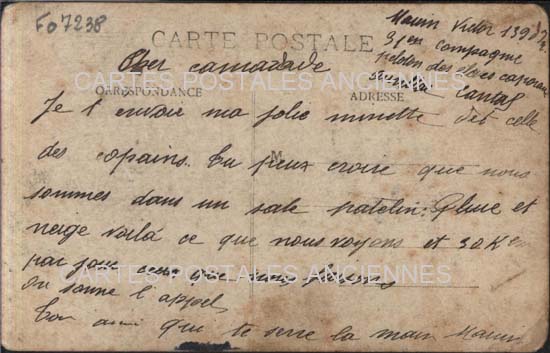 Fo7238
Mauin Victor 139 d'I
31em Compagnie
Peloton des eleves caporaux
Aurillac Cantal
CARTE POSTALE
Cher camarade
CARTES POSTALES ANCIENNES
CORRESPONDANCE
ADRESSE
Je t envoie ma jolie minette et celle
des copains. tu peux croire que nous
M
sommes dans un sale patelin. Pluie et
neige voilà ce que nous voyons et 30 Km
par jour
CARTES POSTALES ANCIENNES
on sonne l'appel
ton ami qui te serre la main Mauin